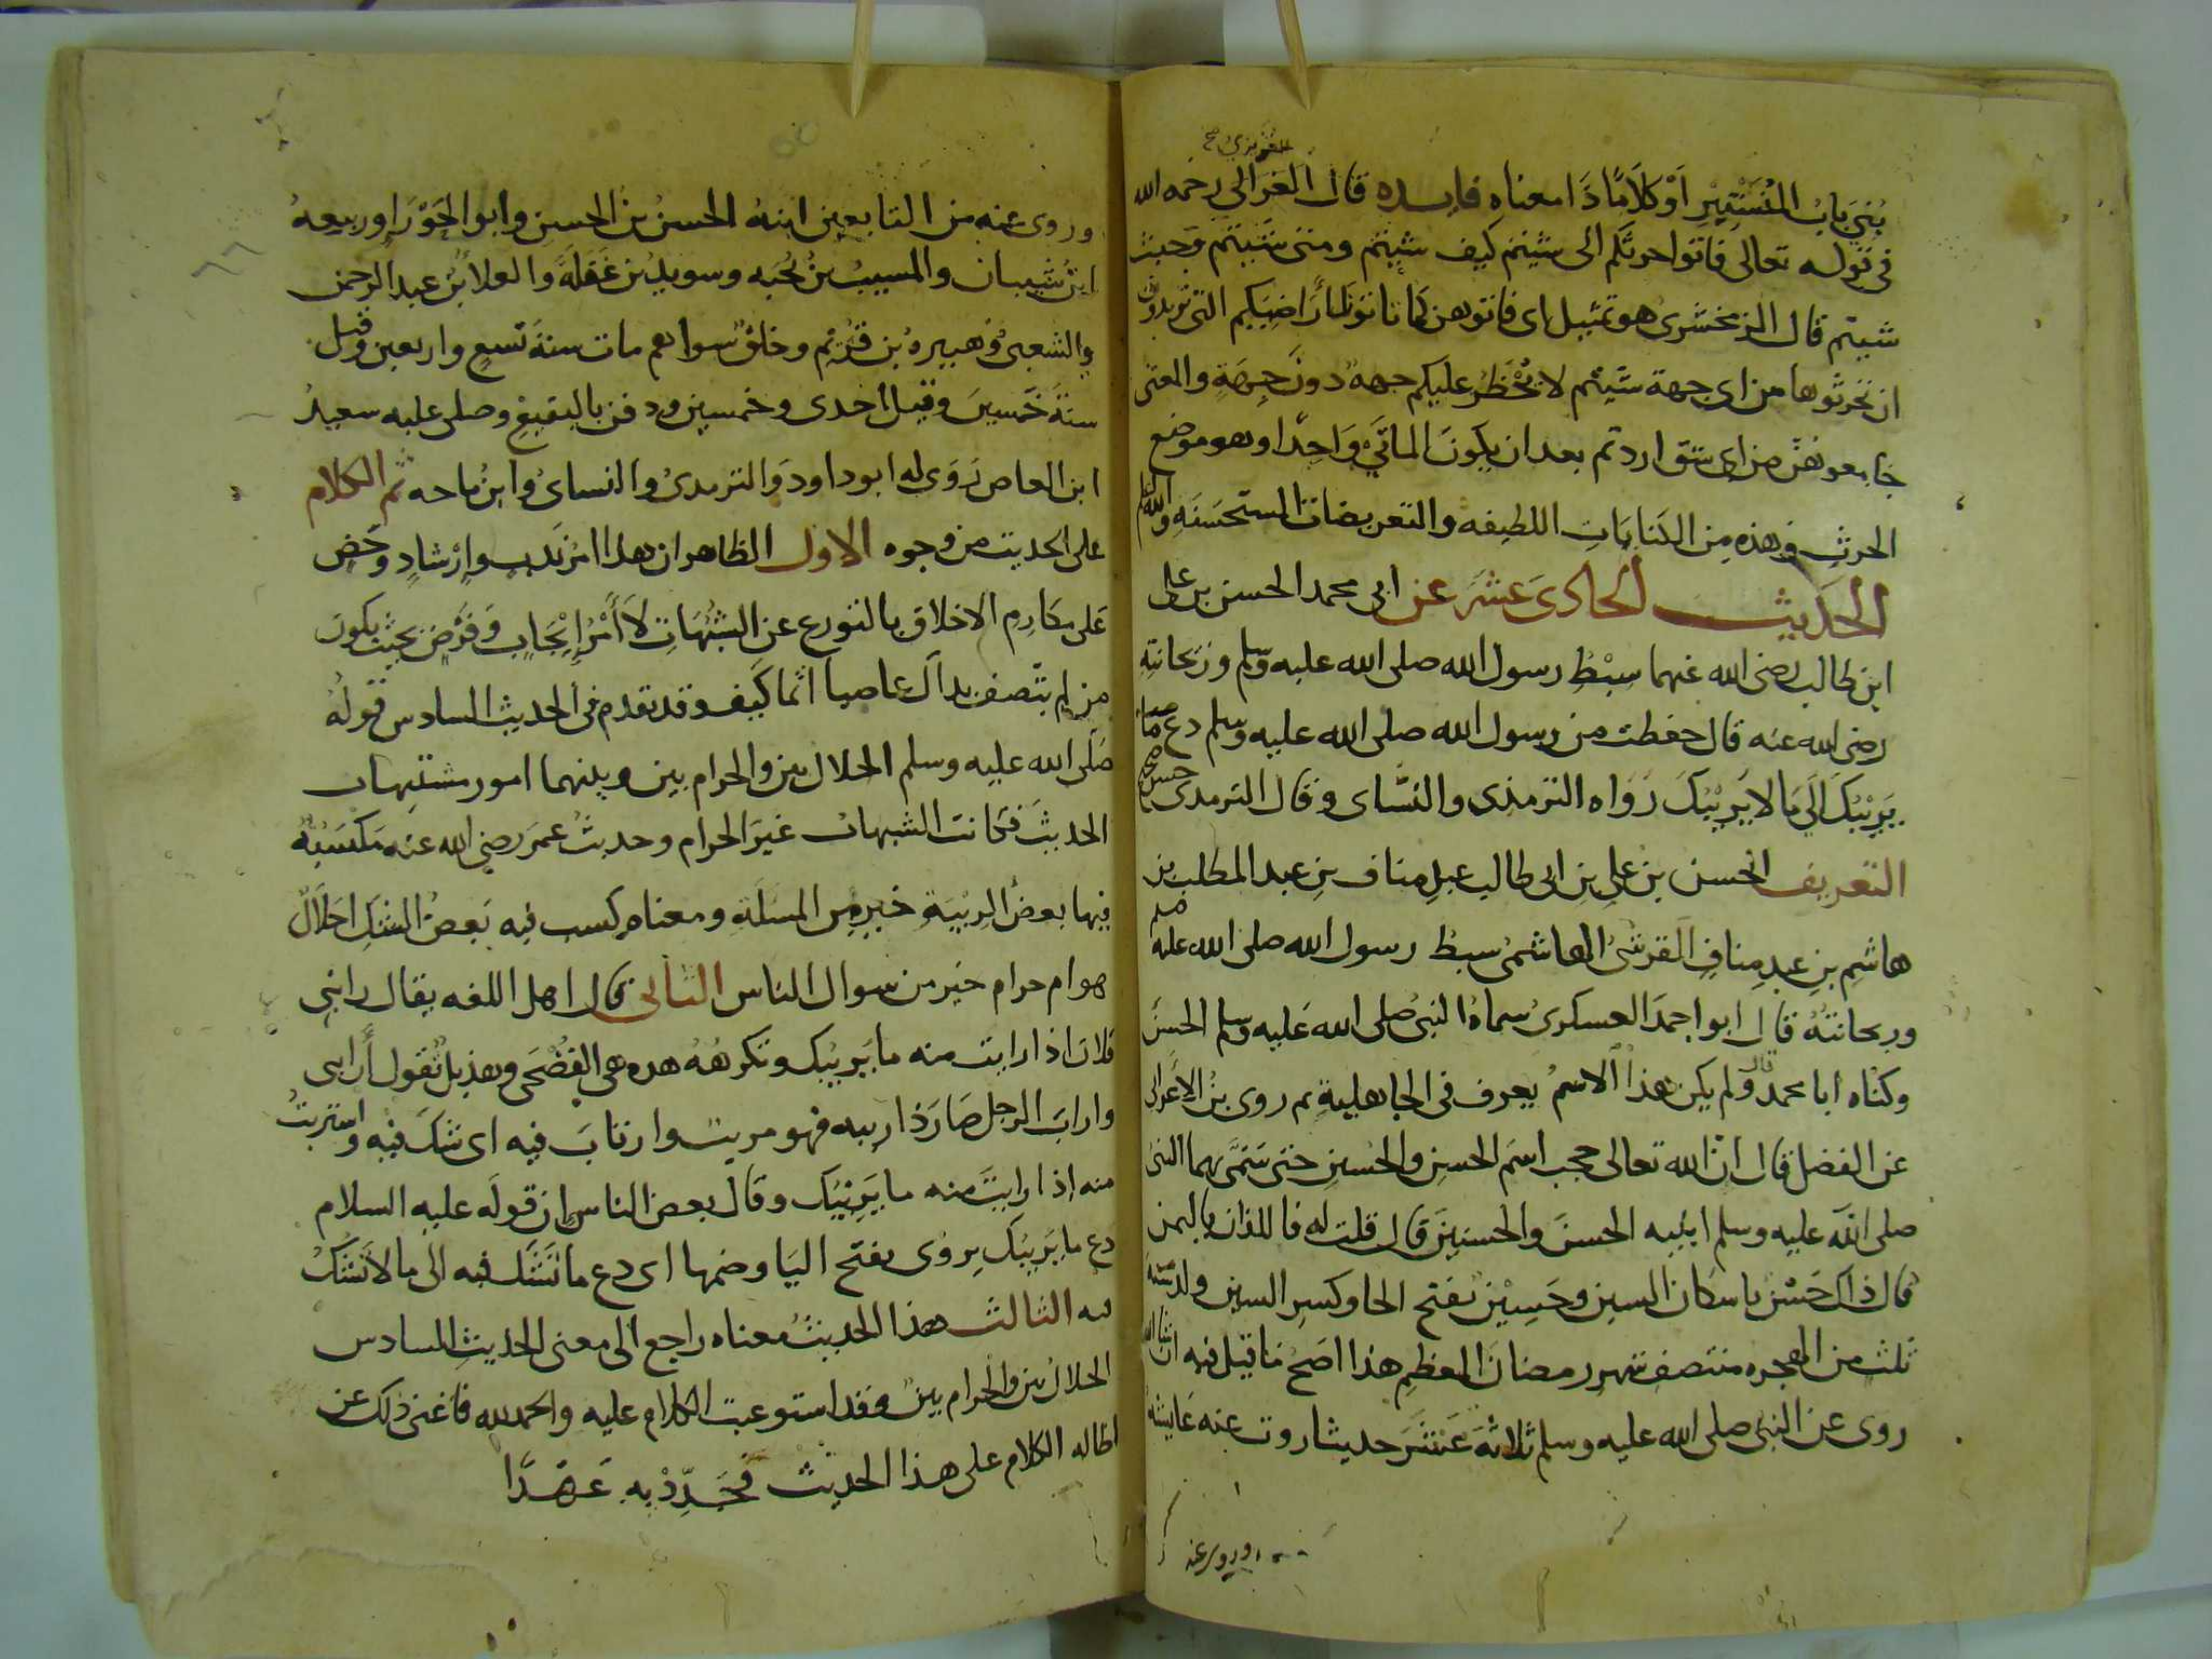 بُنيَ بابُ المُسْتَتِيْرِ اَوْ كَلاَمًا ذَا معناهِ فايده قال الغزالى رحمه الله
فى قوله تعالى فاتوا حرثكم انى شيتم كيف شيتم ومتى شيتم وحيث
شيتم قال الزمخشرى هو تمثيل اى فاتوهن كما تاتون اَرَاضِيَكم التى تريدون
ان تحرثوها من اى جهة شيتم لا تُحْظَر عليكم جهة دونَ جِهَةٍ والمعنى
جامعوهُنّ من اى شق اردتم بعد ان يكونَ الماتَىُّ وَاحِدًا وهو موضع
الحرثِ وهذه مِن الكنايَاتِ اللطيفه والتعريضات المستحسَنَهِ والله اعلم
الحَديث الحادىَ عَشَرَ عن ابى محمد الحسن بن على
ابن ابى طالب رضى الله عنهما سِبْطِ رسول الله صلى الله عليه وسلم وريحانتِهِ
رضى الله عنه قال حفظت من رسول الله صلى الله عليه وسلم دع مَا
يَرِيْبُكَ اِلَى مَا لا يَرِيْبُكَ رَوَاه الترمذى والنسَّاى وقال الترمدى حسن صحيح
التعريف الحسن بن على بنِ ابى طالب عبدِ مناف بنِ عبد المطلب بن
هاشِمِ بنِ عبدِ منافٍ القرشىُّ الهاشمىُّ سبط رسول الله صلى الله عليه وسلم
وريحانتُهُ قال ابو احمدَ العسكرىُّ سماهُ النبىُّ صلى الله عَليه وسلم الحسَنَ
وكنّاه ابا محمد قال ولم يكن هذا الاسمُ يعرف فى الجاهليةِ ثم روى بن الاعرابى
عن الفضل قال انّ الله تعالى حجب اسْمَ الحسنِ والحُسينِ حتى سَمَّى بهما النبىُّ
صلى الله عليه وسلم ابنيه الحسنَ والحسينَ قال قلت له فاللذان باليمن
قال ذاكَ حَسْن باسكان السين وحَسِيْن بفتح الحا وكسرِ السين ولد سَنَةَ
ثلث من الهجره منتصف شهر رمضانَ المعظمِ هذا اصَح مَا قيل فيه ان شا الله
روى عن النبى صلى الله عليه وسلم ثلاثَةَ عَشَرَ حديثا روت عنه عَايشةُ
وروى عنه
وروى عنه من التابعين ابنهُ الحسنُ بنُ الحسنِ وابو الحَوْرَا وربيعهُ
ابنُ شَيبان والمسيبُ بنُ نُجَبه وسويدُ بن غَفَلَةَ والعلا بُن عبد الرحمن
والشعبىُّ وهبيرهُ بن يَرِيْم وخلقٌ سواهم مات سنةَ تسعٍ واربعين وقيل
سنةَ خَمسينَ وقيل احدى وخمسين ودفن بالبقيعِ وصلى عليه سعيدُ
ابن العاص رَوَى له ابو داودَ وَالترمدىُّ والنساىُ وابنُ ماجه ثم الكلام
على الحديث من وجوه الاول الظاهر ان هذا امرُ نَدبٍ وارْشادٍ وحَضّ
عَلى مكارِمِ الاخلاق بالتورع عن الشُبُهَاتِ لاَ اَمْرُ اِيْجَابٍ وَفَرْض بحيث يكونُ
من لم يتصف بذلكَ عاصيا اثما كَيفَ وقد تقدم فى الحديث السادس قولُهُ
صَلّى الله عليه وسلم الحلال بين والحرام بين وبينهما امور مشتبِهات
الحديثَ فكانت الشبهاتُ غيرَ الحرام وحديثُ عمرَ رضى الله عنه مَكْسَبَةٌ
فيها بعضُ الرِيْبَةِ خيرٌ من المسلَةِ ومعناه كسب فيه بَعضُ الشكِ احَلاَلٌ
هو ام حرام خير من سوال الناس الثانى قال اهل اللغه يقال رابنى
فلان اذا رايت منه ما يَرِيبُك وتكرهُهُ هذه هى الفُصْحَى وهذيل تُقول أَرابنى
وارابَ الرجل صَارَ ذا رِيبه فهو مريبٌ وارتابَ فيه اى شكَّ فيه واستربتُ
منه اذا رايتَ منه ما يَرِيْبُكَ وقال بعض الناسِ ان قولَه عليه السلام
دع ما يَرِيبُكَ يروى بفتح اليَا وضمها اى دع ما تشكُّ فيه الى ما لا تَشُكُّ
فيه الثالث هذا الحديثُ معناه راجع الى معنى الحديثِ السادس
الحلالُ بين والحرام بينٌ وقد استوعبت الكلام عليه والحمد لله فاغنى ذلك عن
اطاله الكلام على هذا الحديث فَجَدِّدْ بِهِ عَهْدًا